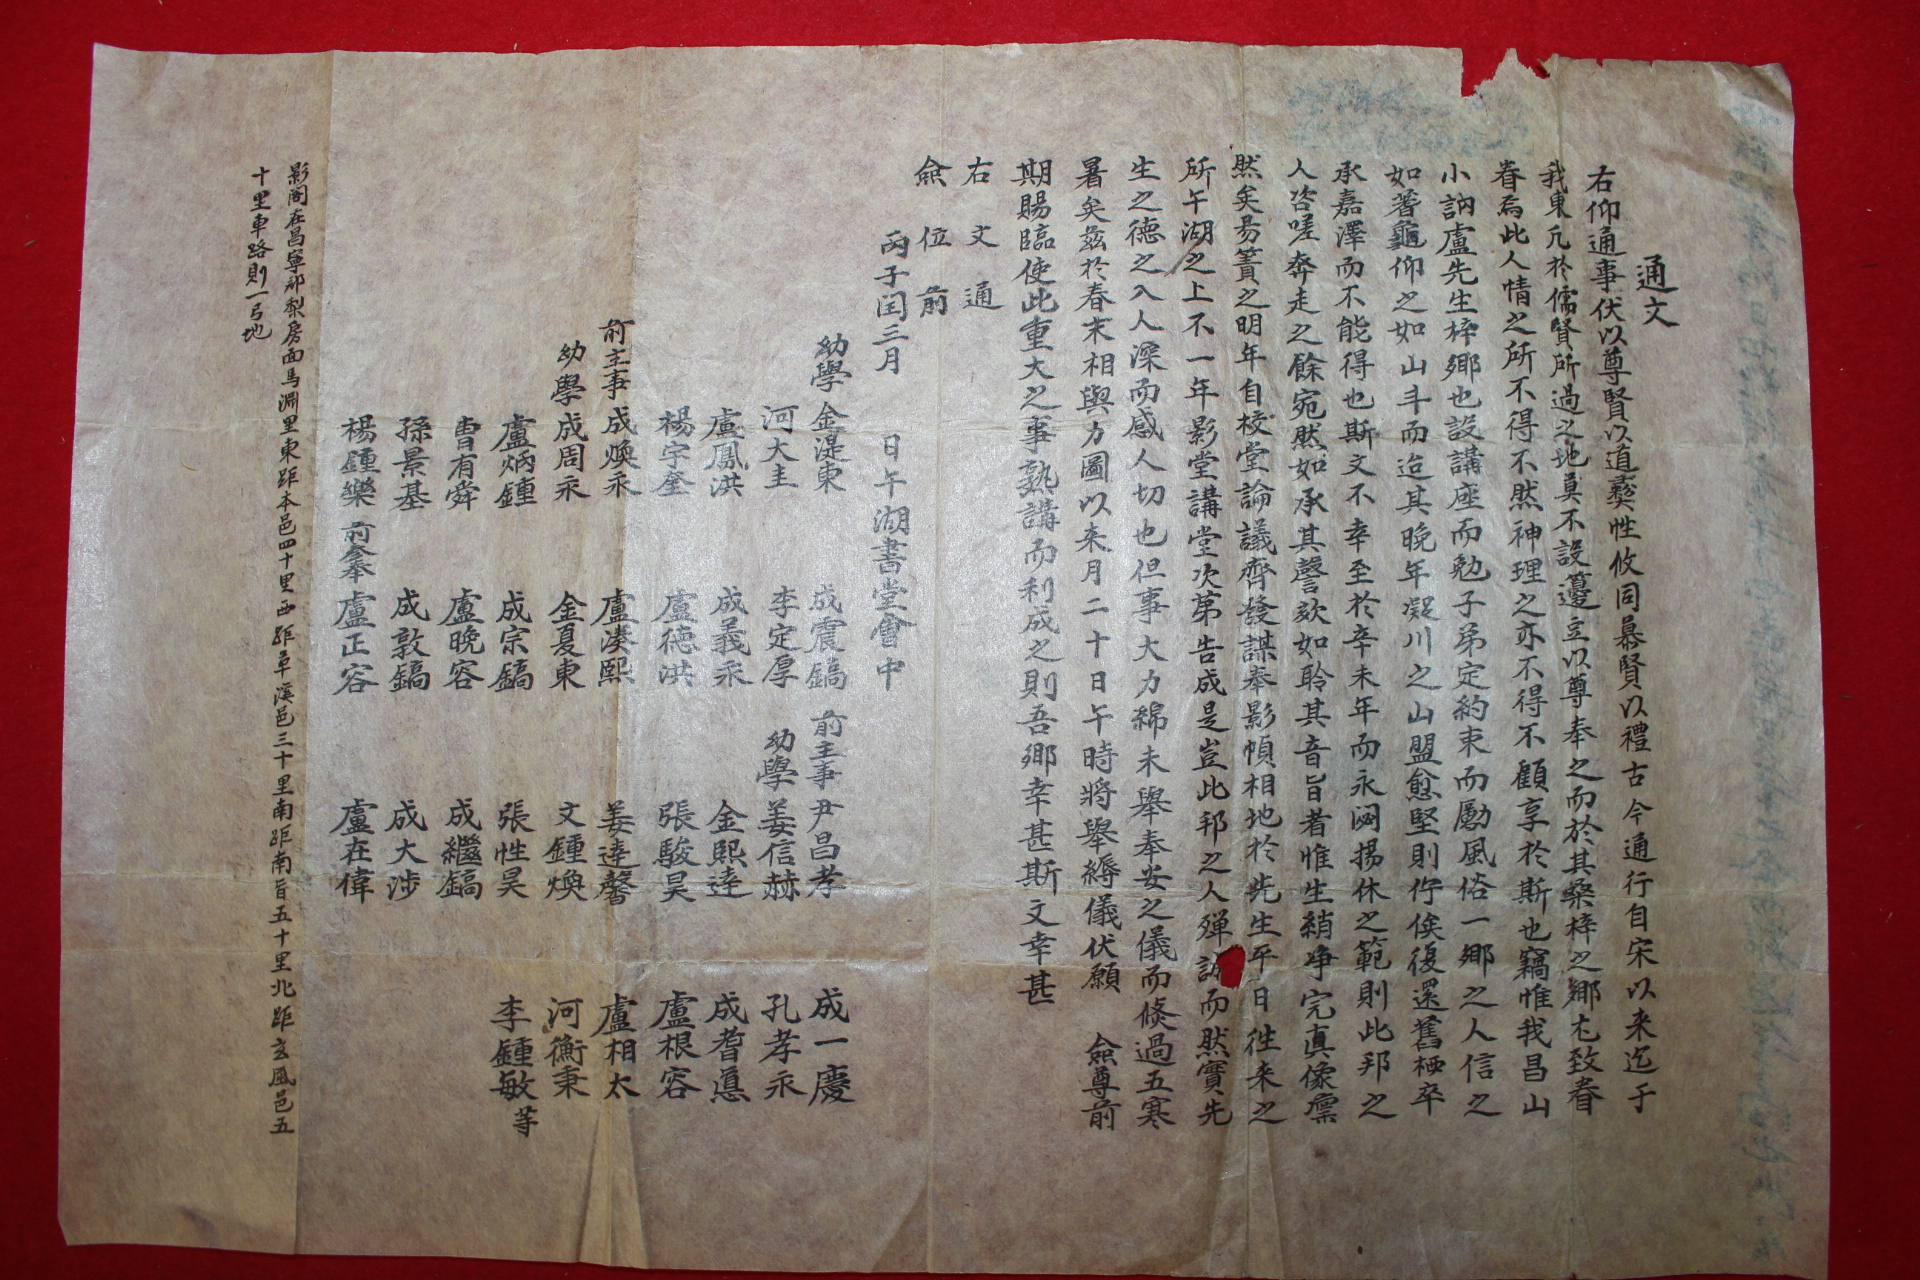 通文
右仰通事伏以尊賢以道彛性攸同慕賢以禮古今通行自宋以来迄于
我東凡於儒賢所過之地莫不設籩豆以尊奉之而於其桑梓之鄕尤致眷
眷焉此人情之所不得不然神理之亦不得不顧享於斯也竊惟我昌山
小訥盧先生梓鄕也設講座而勉子弟定約束而勵風俗一鄕之人信之
如蓍龜仰之如山斗而迨其晩年凝川之山盟愈堅則佇俟後還舊栖卒
承嘉澤而不能得也斯文不幸至於辛未年而永閟揚休之範則此邦之
人咨嗟奔走之餘宛然如承其謦欬如聆其音旨者惟生綃幀完真像癛
然矣昜簀之明年自校堂論議齊發謀奉影幀相地於先生平日徃来之
所午湖之上不一年影堂講堂次第告成是豈此邦之人殫誠而然實先
生之德之入人深而感人切也但事大力綿未舉奉安之儀而倐過五寒
暑矣玆於春末相與力圖以来月二十日午時將舉縟儀伏願 僉尊前
期賜臨使此重大之事熟講而利成之則吾鄕幸甚斯文幸甚
右文通
僉位前
丙子閏三月 日午湖書堂會中
幼學 金湜東 成震鎬 前主事 尹昌孝 成一慶
河大圭 李定厚 幼學 姜信赫 孔孝永
盧鳳洪 成義永 金熙逵 成耆悳
楊宇奎 盧德洪 張駿昊 盧根容
前主事 成煥永 盧湊熙 姜逵馨 盧相太
幼學 成周永 金夏東 文鍾煥 河衡秉
盧炳鍾 成宗鎬 張性昊 李鍾敏 等
曺有舜 盧晩容 成繼鎬
孫景基 成敦鎬 成大涉
楊鍾樂 前叅奉 盧正容 盧在偉
影閣在昌寧郡梨房面馬淵里東距本邑四十里西距草溪邑三十里南距南旨五十里北距玄風邑五
十里車路則一弓地